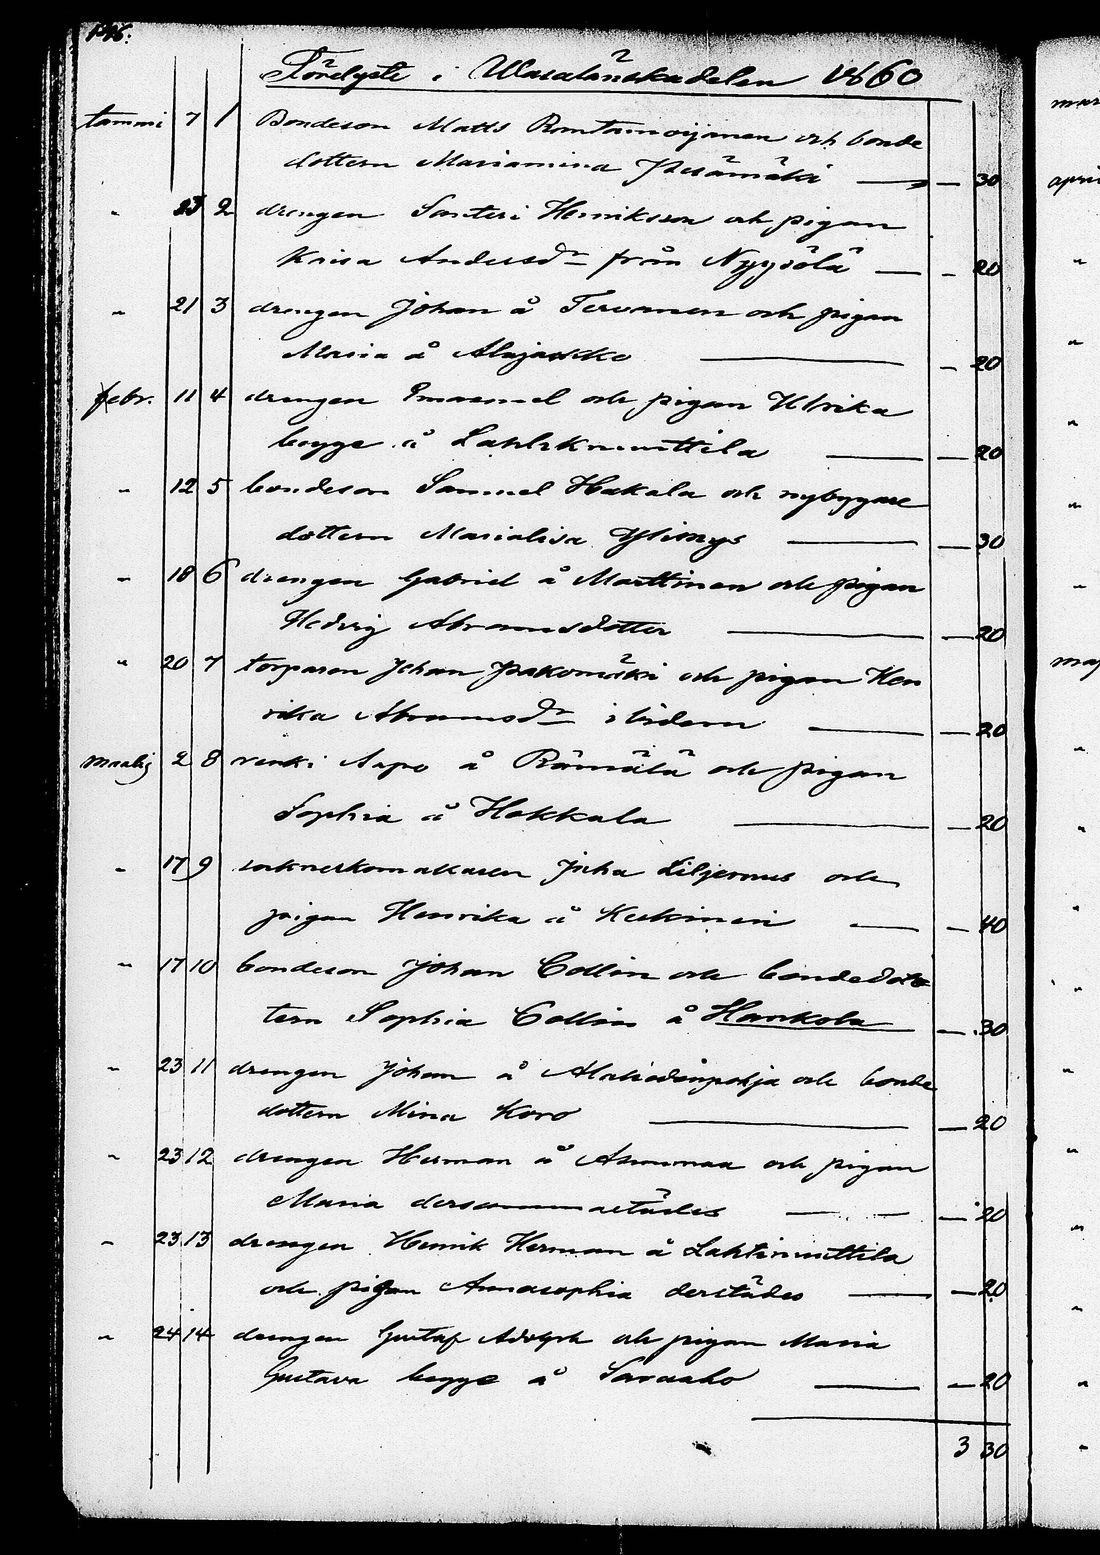 146.
Förelyste i Wasalänskadelen 1860
tammi 7 1 Bondeson Matts Rantamoijanen och bonde
dottern Mariamina Pesämäki — 30
" 23 2 drengen Santeri Henriksson och pigan
Kaisa Andersdr från Nyysölä — 20
" 21 3 drengen Johan å Tervonen och pigan
Maria å Alajaskko — 20
febr. 11 4 drengen Emanuel och pigan Ulrika
begge å Lahdeknuuttila — 20
" 12 5 bondeson Samuel Hakala och nybyggare
dottern Marialisa Ylimys — 30
" 18 6 drengen Gabriel å Marttinen och pigan
Hedvig Abramsdotter — 20
" 20 7 torparen Johan Pakomäki och pigan Hen
rika Abramsdr ibidem — 20
maalis 2 8 renki Aapo å Rämälä och pigan
Sophia å Hokkala — 20
" 17 9 sockneskomakaren Juha Liljeroos och
pigan Henrika å Keskinen — 40
" 17 10 bondeson Johan Collin och bondedot
tern Sophia Collin å Hankola — 30
" 23 11 drengen Johan å och bonde
dottern Mina Koro — 20
" 23 12 drengen Herman å Ammunaa och pigan
Maria dersammastädes — 20
" 23 13 drengen Henrik Herman å Lahtinuuttila
och pigan Annasophia derstädes — 20
" 24 14 drengen Gustaf Adolph och pigan Maria
Gustava begge å Savaaho — 20
3 30
mar
apri
maj